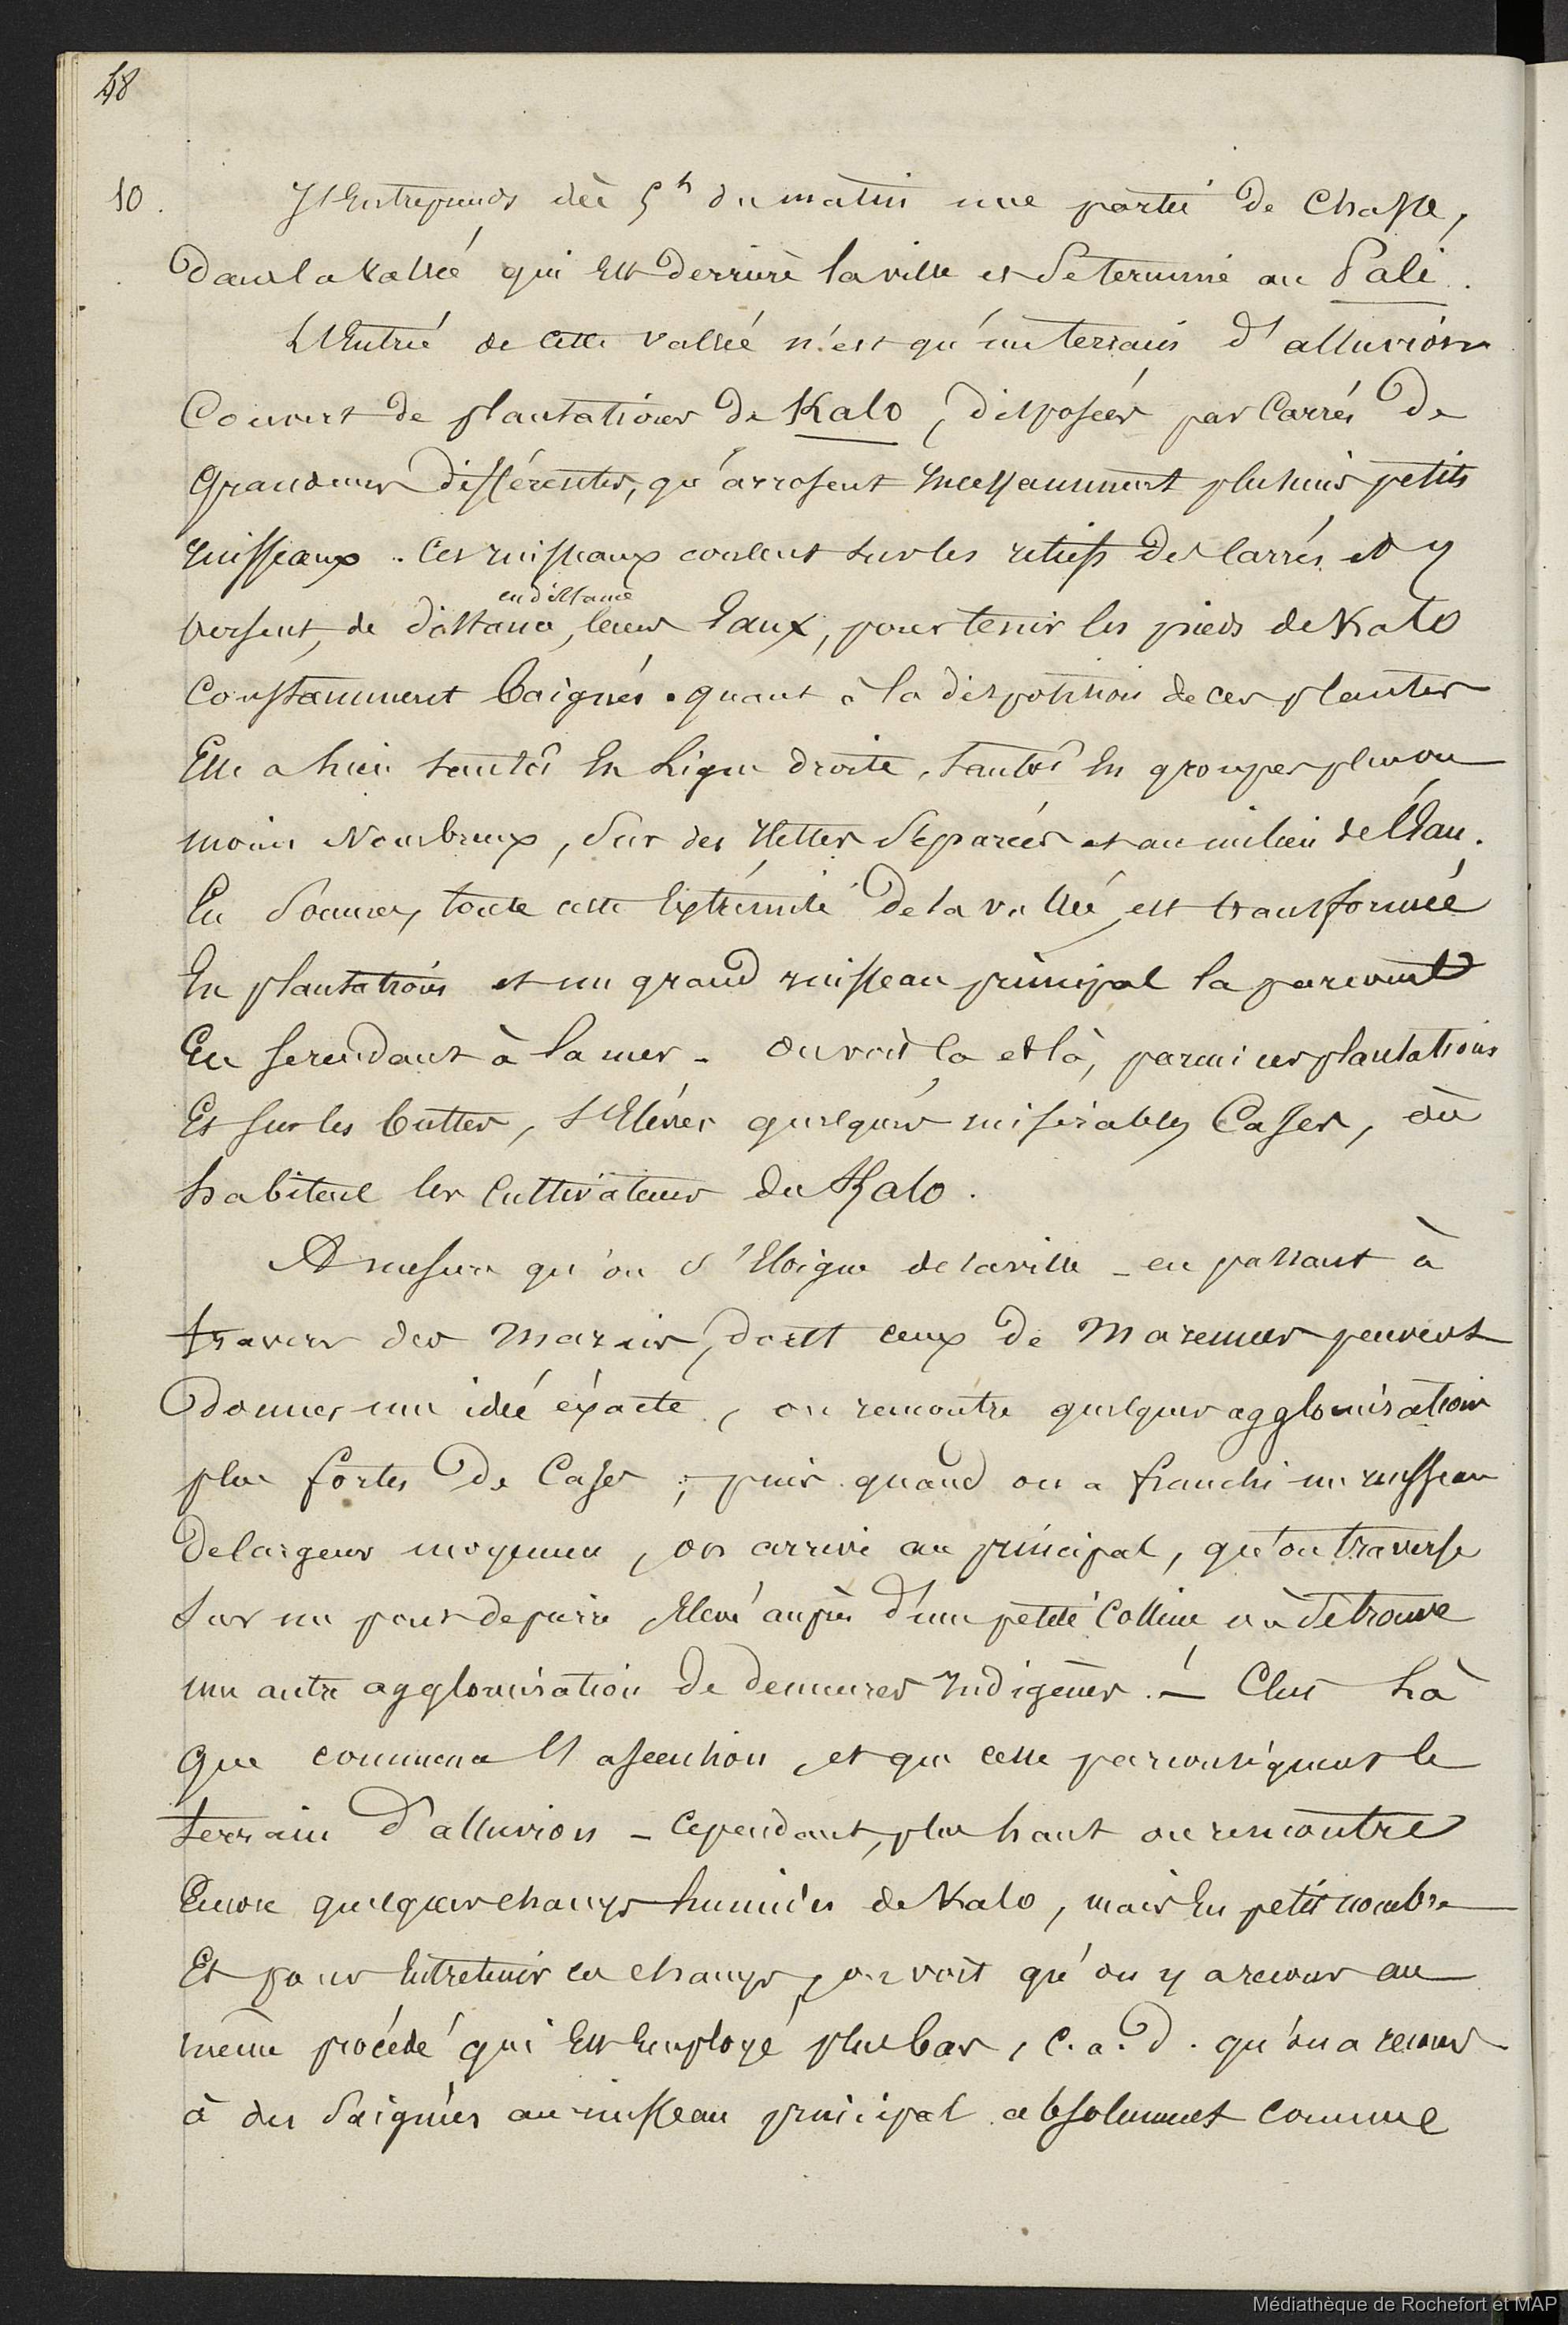 48
10.
J'Entreprends dès 5h du matin une partie de Chasse,
Dans la Vallée qui Est Derrière la ville et Se termine au Pali.
L'Entrée de Cette Vallée n'est qu'un terrain d'alluvion
Couvert de plantations de Kalo, disposées par Carrés De
Grandeurs Différentes, qu'arrosent Incessamment plusieurs petits
ruisseaux. Ces ruisseaux coulent sur les reliefs des Carrés et y
en distance
versent, de distance, leurs Eaux, pour tenir les pieds de Kalo
Constamment baignés. quant à la disposition de ces plantes
Elle a lieu tantôt En Ligne droite, tantôt En groupes plus ou
moins Nombreux, Sur des Ilettes Séparées et au milieu de l'Eau.
En Somme, toute cette Extrémité De la vallée est transformée
En plantations et un grand ruisseau principal la parcourt
En se rendant à la mer - On voit ça et là, parmi ces plantations
Et sur les buttes, s'Elever quelques misérables Cases, où
habitent les Cultivateurs du Kalo.
A mesure qu'on s'Eloigne de la ville - en passant à
travers des Marais, dont ceux de Marennes peuvent
Donner une idée éxacte, on rencontre quelques agglomérations
plus fortes De Cases ; puis quand on a franchi un ruisseau
De largeur moyenne, on arrive au principal, qu'on traverse
sur un pont de pierre Elevé auprès d'une petite Colline où Se trouve
une autre agglomération De demeures Indigènes. - C'est Là
que commence l'ascention, et que cesse par conséquent le
terrain D'alluvion - Cependant, plus haut on rencontre
Encore quelques champs humides de Kalo, mais En petit nombre
Et pour Entretenir ces champs, on voit qu'on y a recours au
même procédé qui Est Employé plus bas, c.a.d. qu'on a recours
à des Saignées au ruisseau principal absolument comme
Médiathèque de Rochefort et MAP